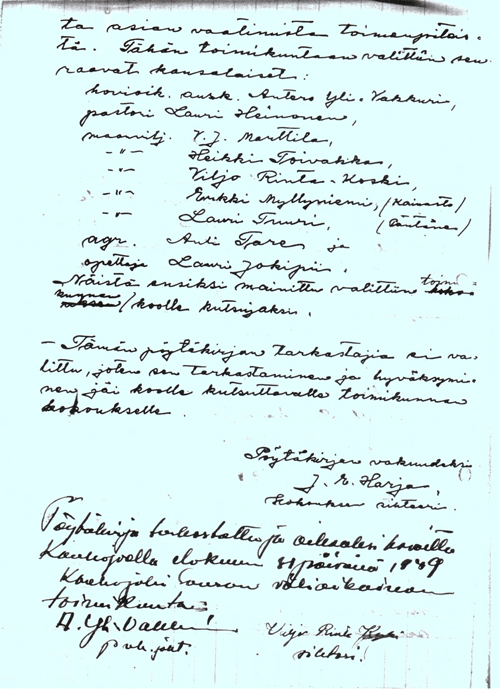 ta asian vaatimista toimenpiteis-
tä. Tähän toimikuntaan valittiin seu-
raavat kansalaiset:
hovioik. ausk. Antero Yli-Vakkuri,
pastori Lauri Heinonen,
maanvilj. V.J. Marttila,
-"- Heikki Toivakka,
-"- Viljo Rinta-Koski,
-"- Erkki Myllyniemi, (Kainasto)
-"- Lauri Tuuri, (Päntäne)
agr. Anti Tare ja
opettaja Lauri Jokipii.
Näistä ensiksi mainittu valittiin toimi-
kunnan /koolle kutsujaksi.
- Tämän pöytäkirjan tarkastajia ei va-
littu, joten sen tarkastaminen ja hyväksymi-
nen jäi koolle kutsuttavalle toimikunnan
kokoukselle.
Pöytäkirjan vakuudeksi
J. E. Harja,
kokouksen sihteeri.
Pöytäkirja tarkastettu ja oikeaksi havaittu
Kauhajoella elokuun 31 päivänä 1949
Kauhajoki seuran väliaikainen
toimikunta:
A. Yli-Vakkuri Viljo Rinta-Koski
puh.joht. sihteeri.